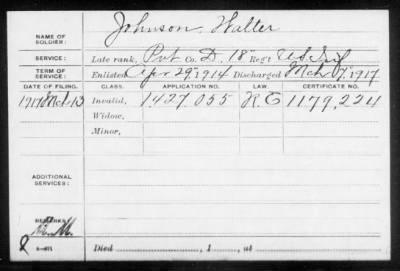 Johnson, Walter
NAME OF SOLDIER:
SERVICE: Late rank, Pvt Co. D, 18" Reg't U.S. Inf
TERM OF SERVICE: Enlisted Apr 29", 1914 Discharged Mch 17, 1917
DATE OF FILING. CLASS. APPLICATION NO. LAW. CERTIFICATE NO.
1917 Mch 13 Invalid, 1427.055 R.E 1179,224
Widow,
Minor,
ADDITIONAL SERVICES:
REMARKS
Died , 1 , at